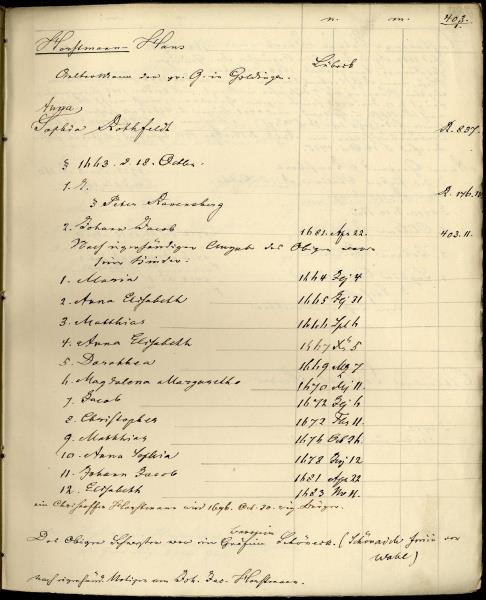 n. m. 403.
Horstmann Hans
Lübeck
Aeltermann der gr. G. in Goldingen.
Anna,
Sophia Rothfeldt R. 837.
§ 1663. d. 18. Octbr.
1. N.
3 Peter Ravensberg R. 176.
2. Johann Jacob 1681. Apr 22. 403.11.
Nach eigenhändiger Angabe des Obigen waren
seine Kinder:
1. Maria 1664 4
2. Anna Elisabeth 1665 31
3. Matthias 1666 Spt 6
4. Anna Elisabeth 1667 Xbr 5
5. Dorothea 1669 7
6. Magdalena Margaretha 1670 11.
7. Jacob 1672 6
8. Christopher 1673 11.
9. Matthias 1676 Oct 26
10. Anna Sophia 1678 12
11. Johann Jacob 1681 Apr 22
12. Elisabeth 1683 Nv 11.
ein Christoffer Horstmann wird 1696. Oct. 30. Bürger.
Des Obigen Schwester war ein Gräfin Schöneck. (Schönaich
Wahl)
nach eigenhänd. Notizen von Joh. Jac. Horstmann.